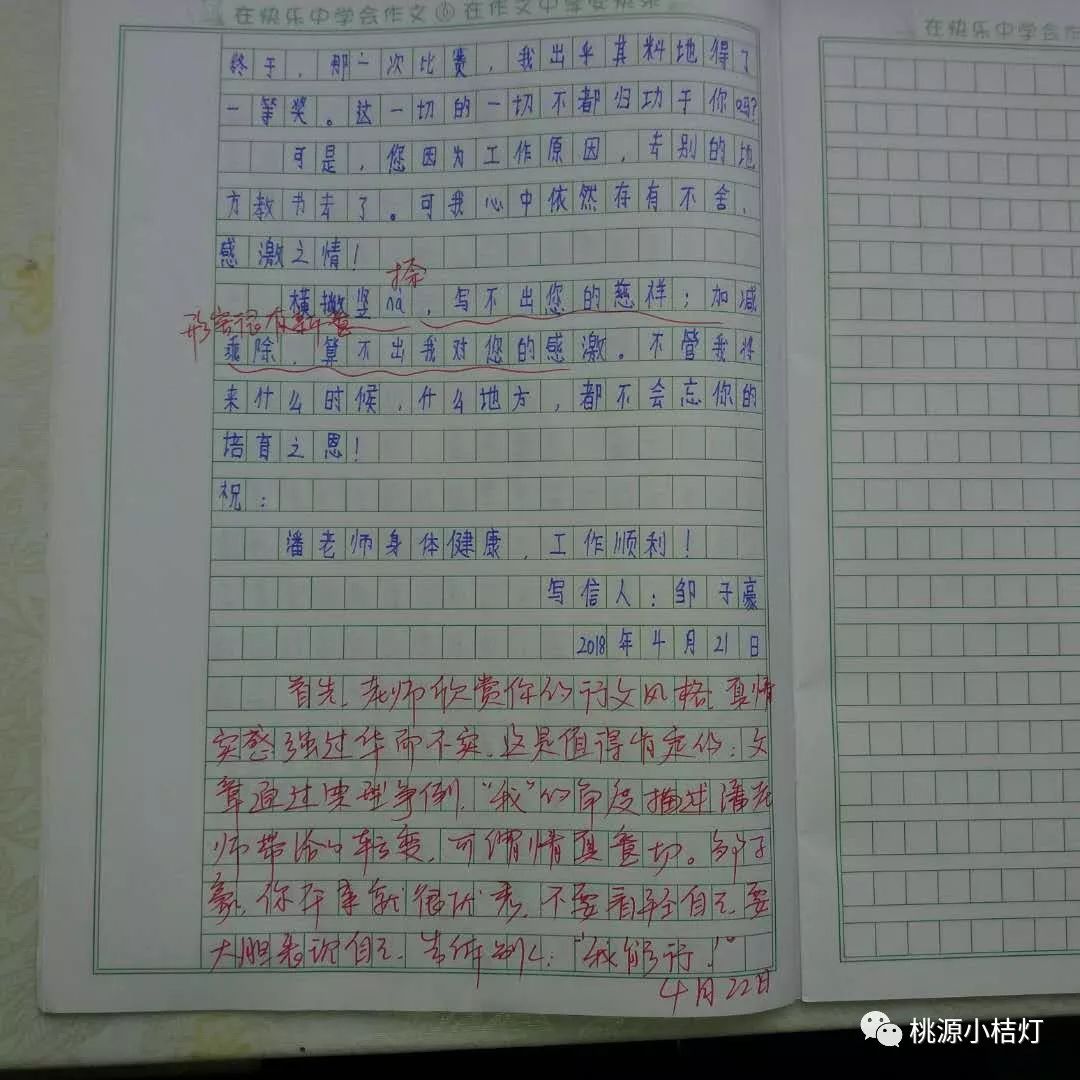 在快乐中学会作文 在作文中享受快乐
在快乐中学会作
终于，那一次比赛，我出乎其料地得了
一等奖。这一切的一切不都归功于你吗？
可是，您因为工作原因，去别的地
方教书去了。可我心中依然存有不舍、
感激之情！
捺
横撇竖nà，写不出您的慈祥；加减
形容很有新意
乘除，算不出我对您的感激。不管我将
来什么时候，什么地方，都不会忘你的
培育之恩！
祝：
潘老师身体健康，工作顺利！
写信人：邹子豪
2018年4月21日
首先，老师欣赏你的行文风格，真情
实感强过华而不实，这是值得肯定的；文
章通过典型事例，“我”的角度描述潘老
师带给的转变，可谓情真意切。邹子
豪，你本来就很优秀，不要看轻自己，要
大胆表现自己，告诉别人：“我能行！”
4月22日
桃源小桔灯